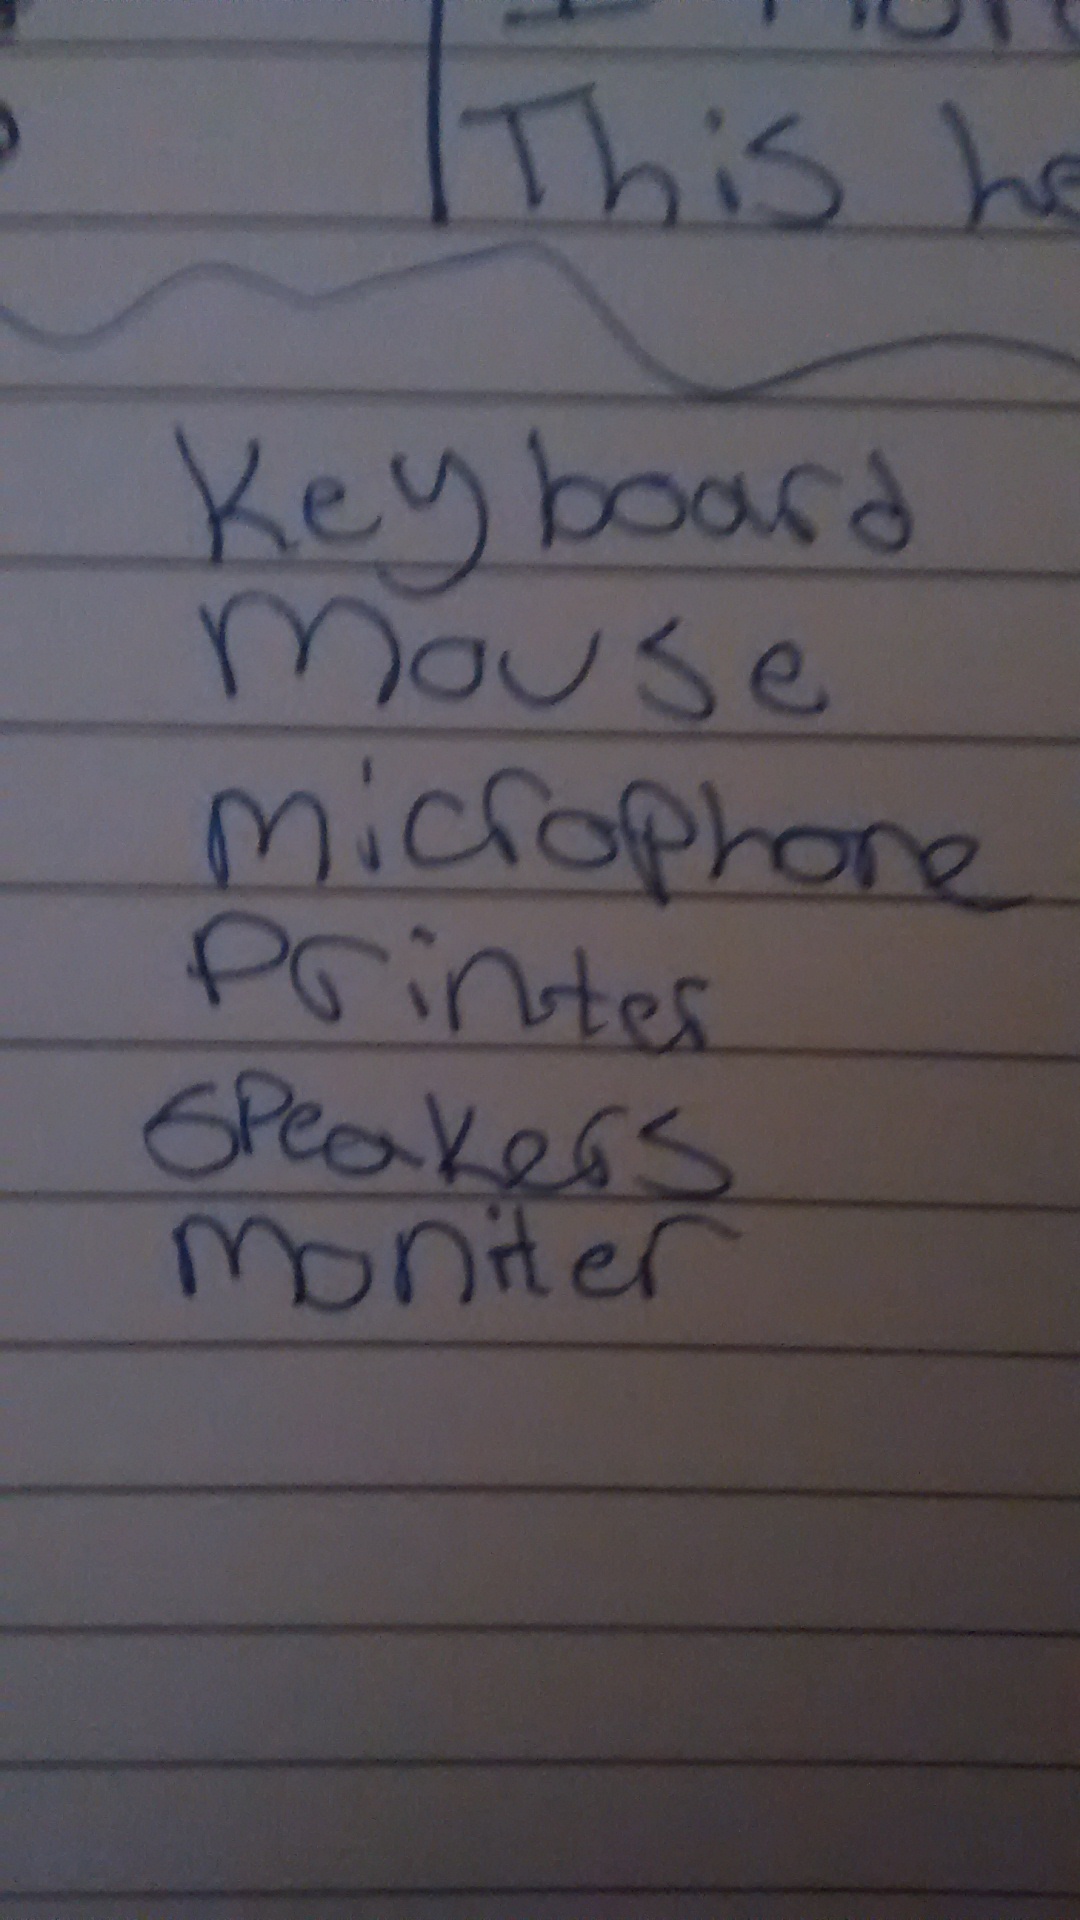 This
Keyboard
Mouse
microphone
Printer
Speakers
moniter